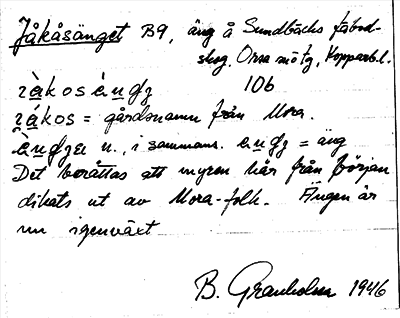 Jåkåsänget B9, äng å Sundbäcks fäbod-
skog. Orsa sötg, Kopparb.l.
10b
= gårdsnamn från Mora.
n., i sammans. = äng
Det berättas att myren här från början
dikats ut av Mora-folk. Ängen är
nu igenväxt
B. Granholm 1946